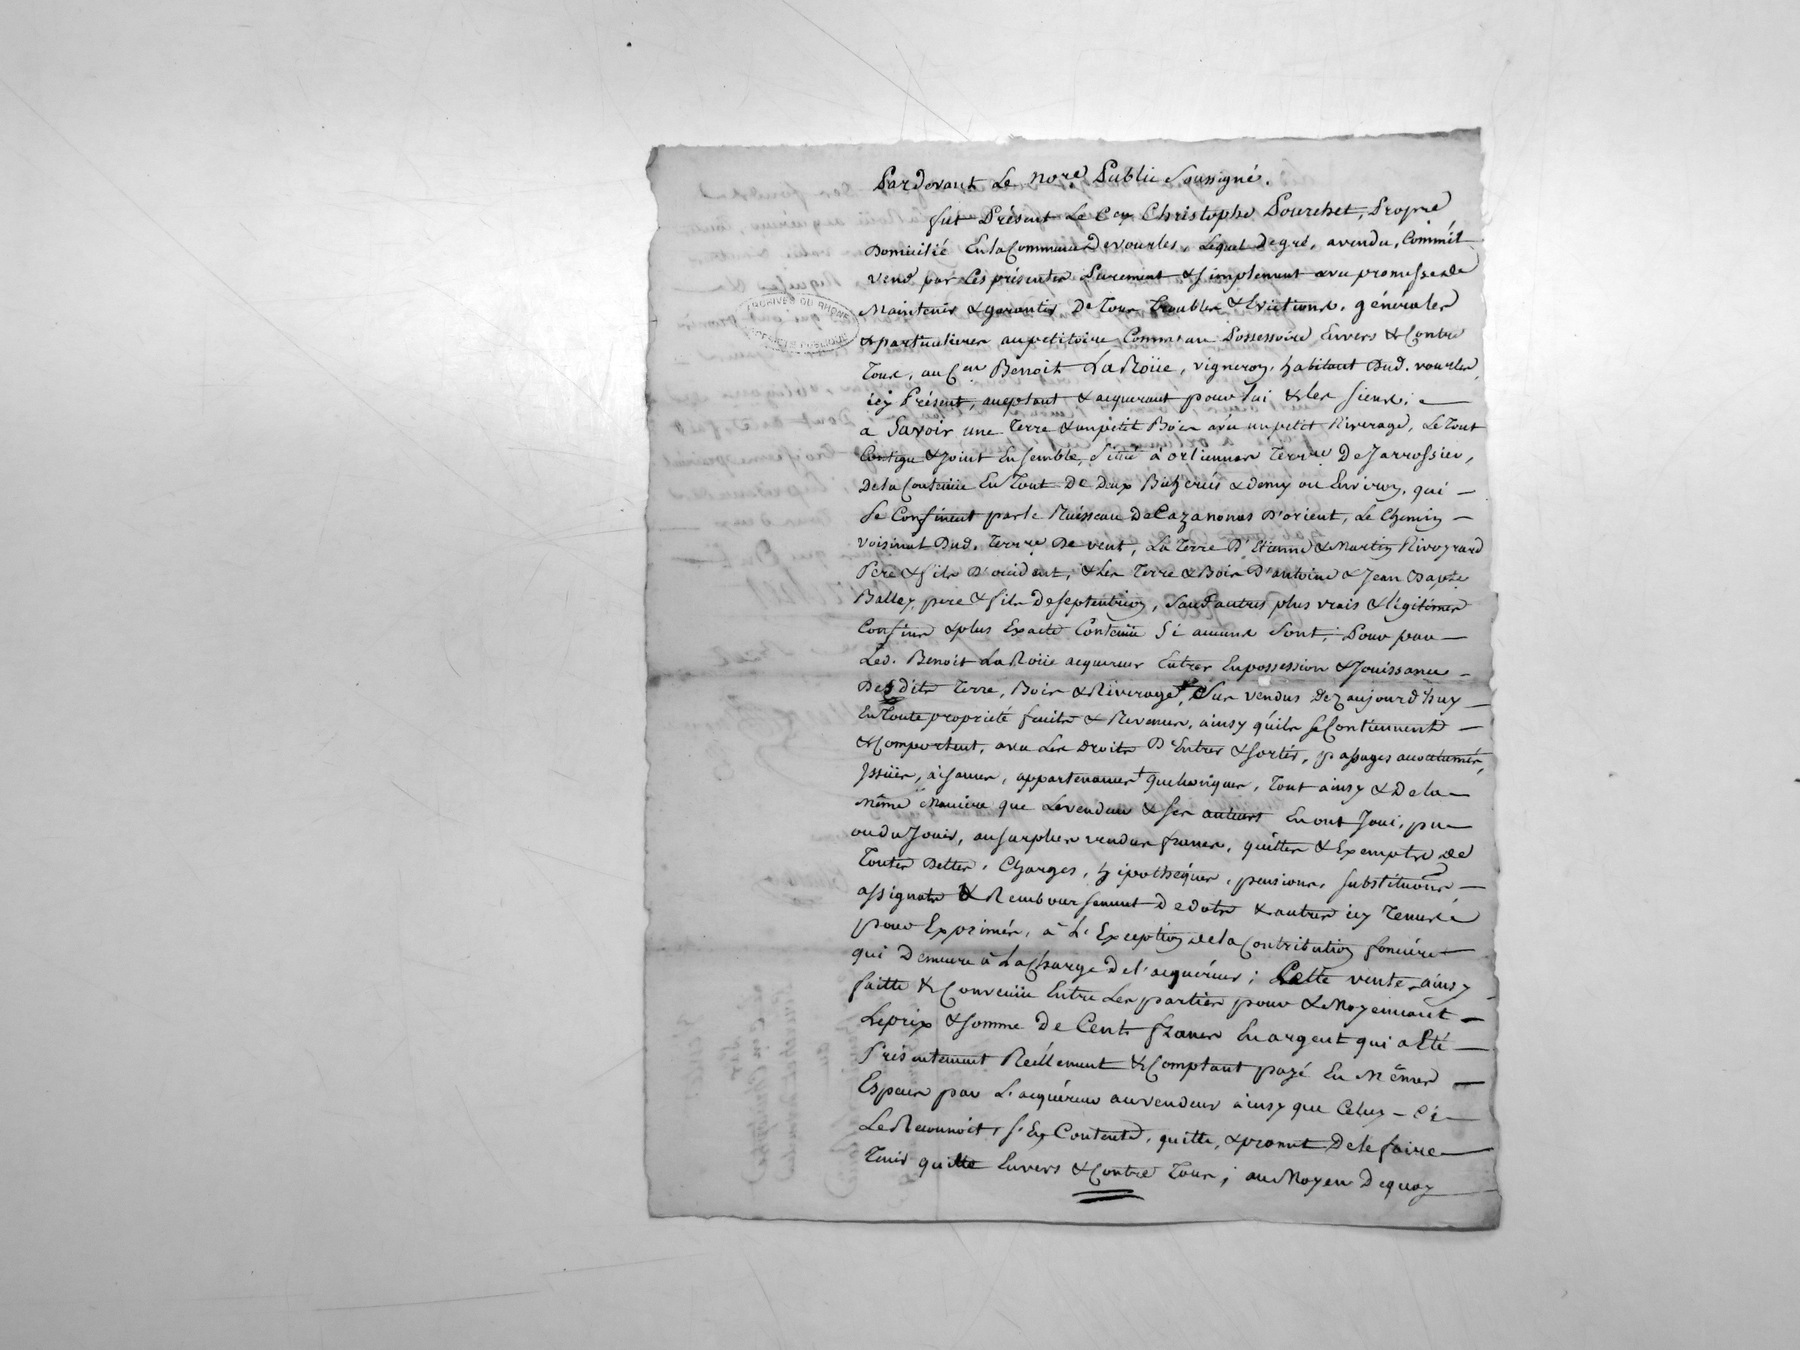 Pardevant Le no.re Public Soussigné.
fut Présent Le C.en Christophe Pourchet, Propre
Domicilié En la Commune De vourles, Lequel de gré, a vendu, Comme il
vend par Les présentes Purement & simplement avec promesse de
Maintenir & garantir De Tous troubles & Evictions, générales
& particulieres au petitoire Comme au Possessoire Envers & Contre
Tous, au C.en Benoit LaRoüe, vigneron, habitant Dud. vourles,
icy Présent, acceptant & acquerant pour Lui & les siens;
a Savoir une Terre & un petit Bois avec un petit Riverage, Le Tout
Contigu & Joint Ensemble, Sittué à orliennas Terr.re De Jarrossieu,
De la Contenüe En Tout De Deux Bicherées & demy ou Environ, qui
Se Confinent par le Ruisseau De Cazanonas D'orient, Le Chemin
voisinal Dud. Terr.re De vent, La Terre D'Etienne & Martin Rivoyrard
Pere & fils D'occident, & Les Terre & Bois D'antoine & Jean Bap.te
Balley, pere & fils De septentrion, Sauf autres plus vrais & légitimes
Confins & plus Exacte Contenüe Si aucuns Sont; Pour par
Led. Benoit LaRoüe acquereur Entrer En possession & Jouissance
Desdits Terre, Bois & Riverage, Sus vendus Dez aujourd'huy
En Toute propriété fruits & Revenus, ainsy qu'ils se Contiennent
& Comportent, avec Les Droits D'Entrer & sortir, passages accoutumés,
Issües, aisances, appartenances quelconques, Tout ainsy & De la
même Maniere que Le vendeur & ses auteurs En ont Joui, pu
ou du Jouir, au surplus vendus francs, quittes & Exempts de
Toutes Dettes, Charges, hipothéques, pensions, substitutions
assignats & Remboursement De dots & autres icy Tenus
pour Exprimés, à L'Exception de la Contribution fonciere
qui Demeure à La Charge De l'acquéreur; Cette vente ainsy
faitte & Convenüe Entre Les parties pour & Moyennant
Le prix & somme De Cent francs En argent qui a Eté
Présentement Réellement & Comptant payé En Mêmes
Especes par L'acquéreur au vendeur ainsy que Celuy-ci
Le Reconnoit, s'En Contente, quitte, & promet De le faire
Tenir quitte Envers & Contre Tous; au Moyen De quoy
ARCHIVES DU RHONE